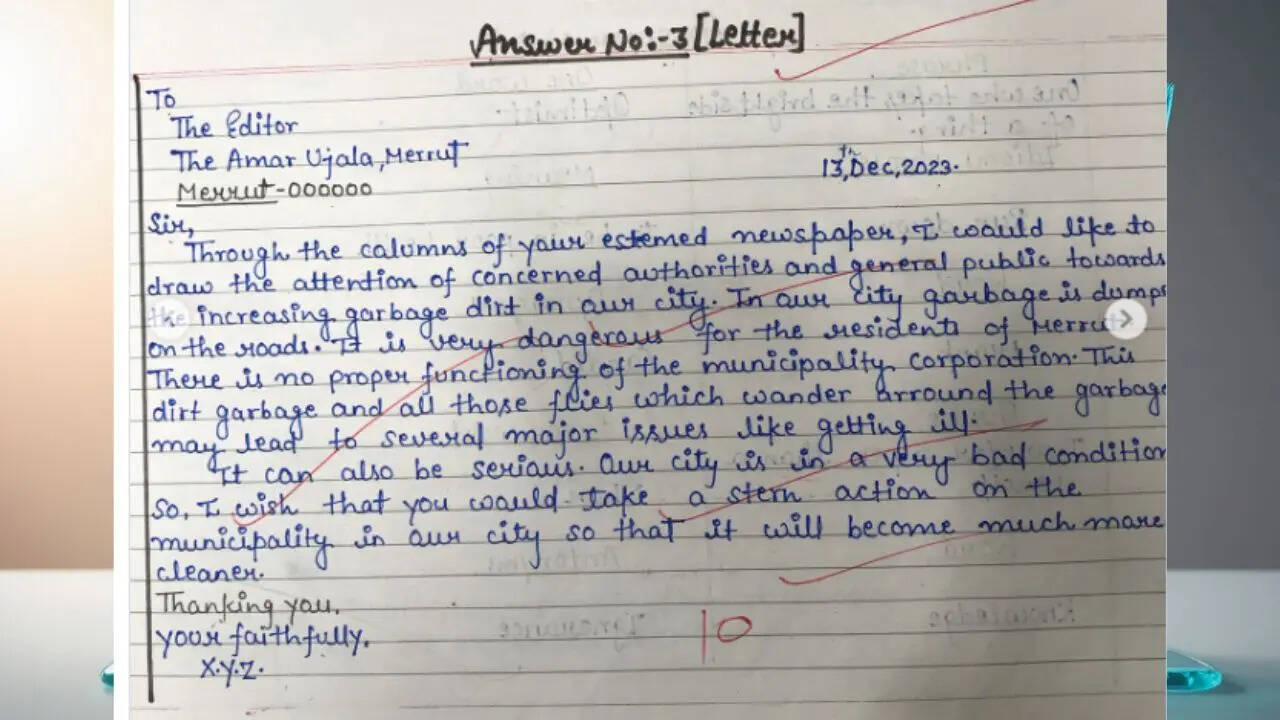 Answer No:-3 [Letter]
To
The Editor
The Amar Ujala, Merrut
13th, Dec, 2023.
Merrut-000000
Sir,
Through the columns of your estemed newspaper, I would like to
draw the attention of concerned authorities and general public towards
the increasing garbage dirt in our city. In our city garbage is dumps
on the roads. It is very dangerous for the residents of Merrut
There is no proper functioning of the municipality corporation. This
dirt garbage and all those flies which wander arround the garbage
may lead to several major issues like getting ill.
It can also be serious. Our city is in a very bad condition
So, I wish that you would take a stern action on the
municipality in our city so that it will become much more
cleaner.
Thanking you.
your faithfully.
X.Y.Z.
10